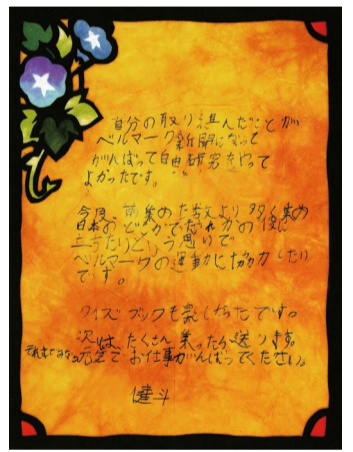 自分の取り組んだことが
ベルマーク新聞になって
がんばって自由研究をやって
よかったです。
今度、前集めた数より多く集め
日本のどこかでだれかの役に
立ちたいという思いで
ベルマークの運動に協力したい
です。
クイズブックも楽しかったです。
次は、たくさん集ったら送ります。
それまでみなさん
元気でお仕事がんばってください。
健斗